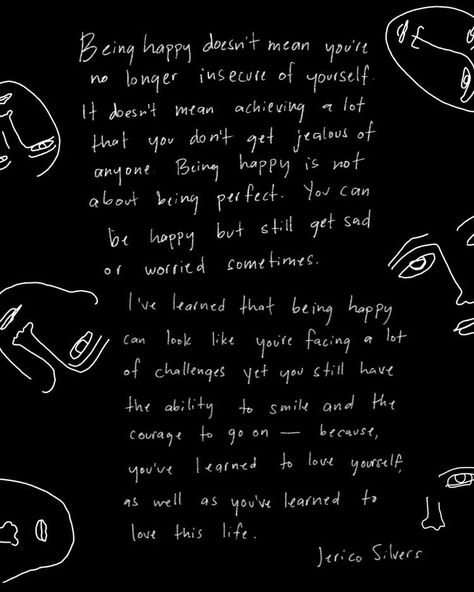 Being happy doesn't mean you're
no longer insecure of yourself.
It doesn't mean achieving a lot
that you don't get jealous of
anyone. Being happy is not
about being perfect. You can
be happy but still get sad
or worried sometimes.
I've learned that being happy
can look like you're facing a lot
of challenges yet you still have
the ability to smile and the
courage to go on — because,
you've learned to love yourself,
as well as you've learned to
love this life.
Jerico Silvers